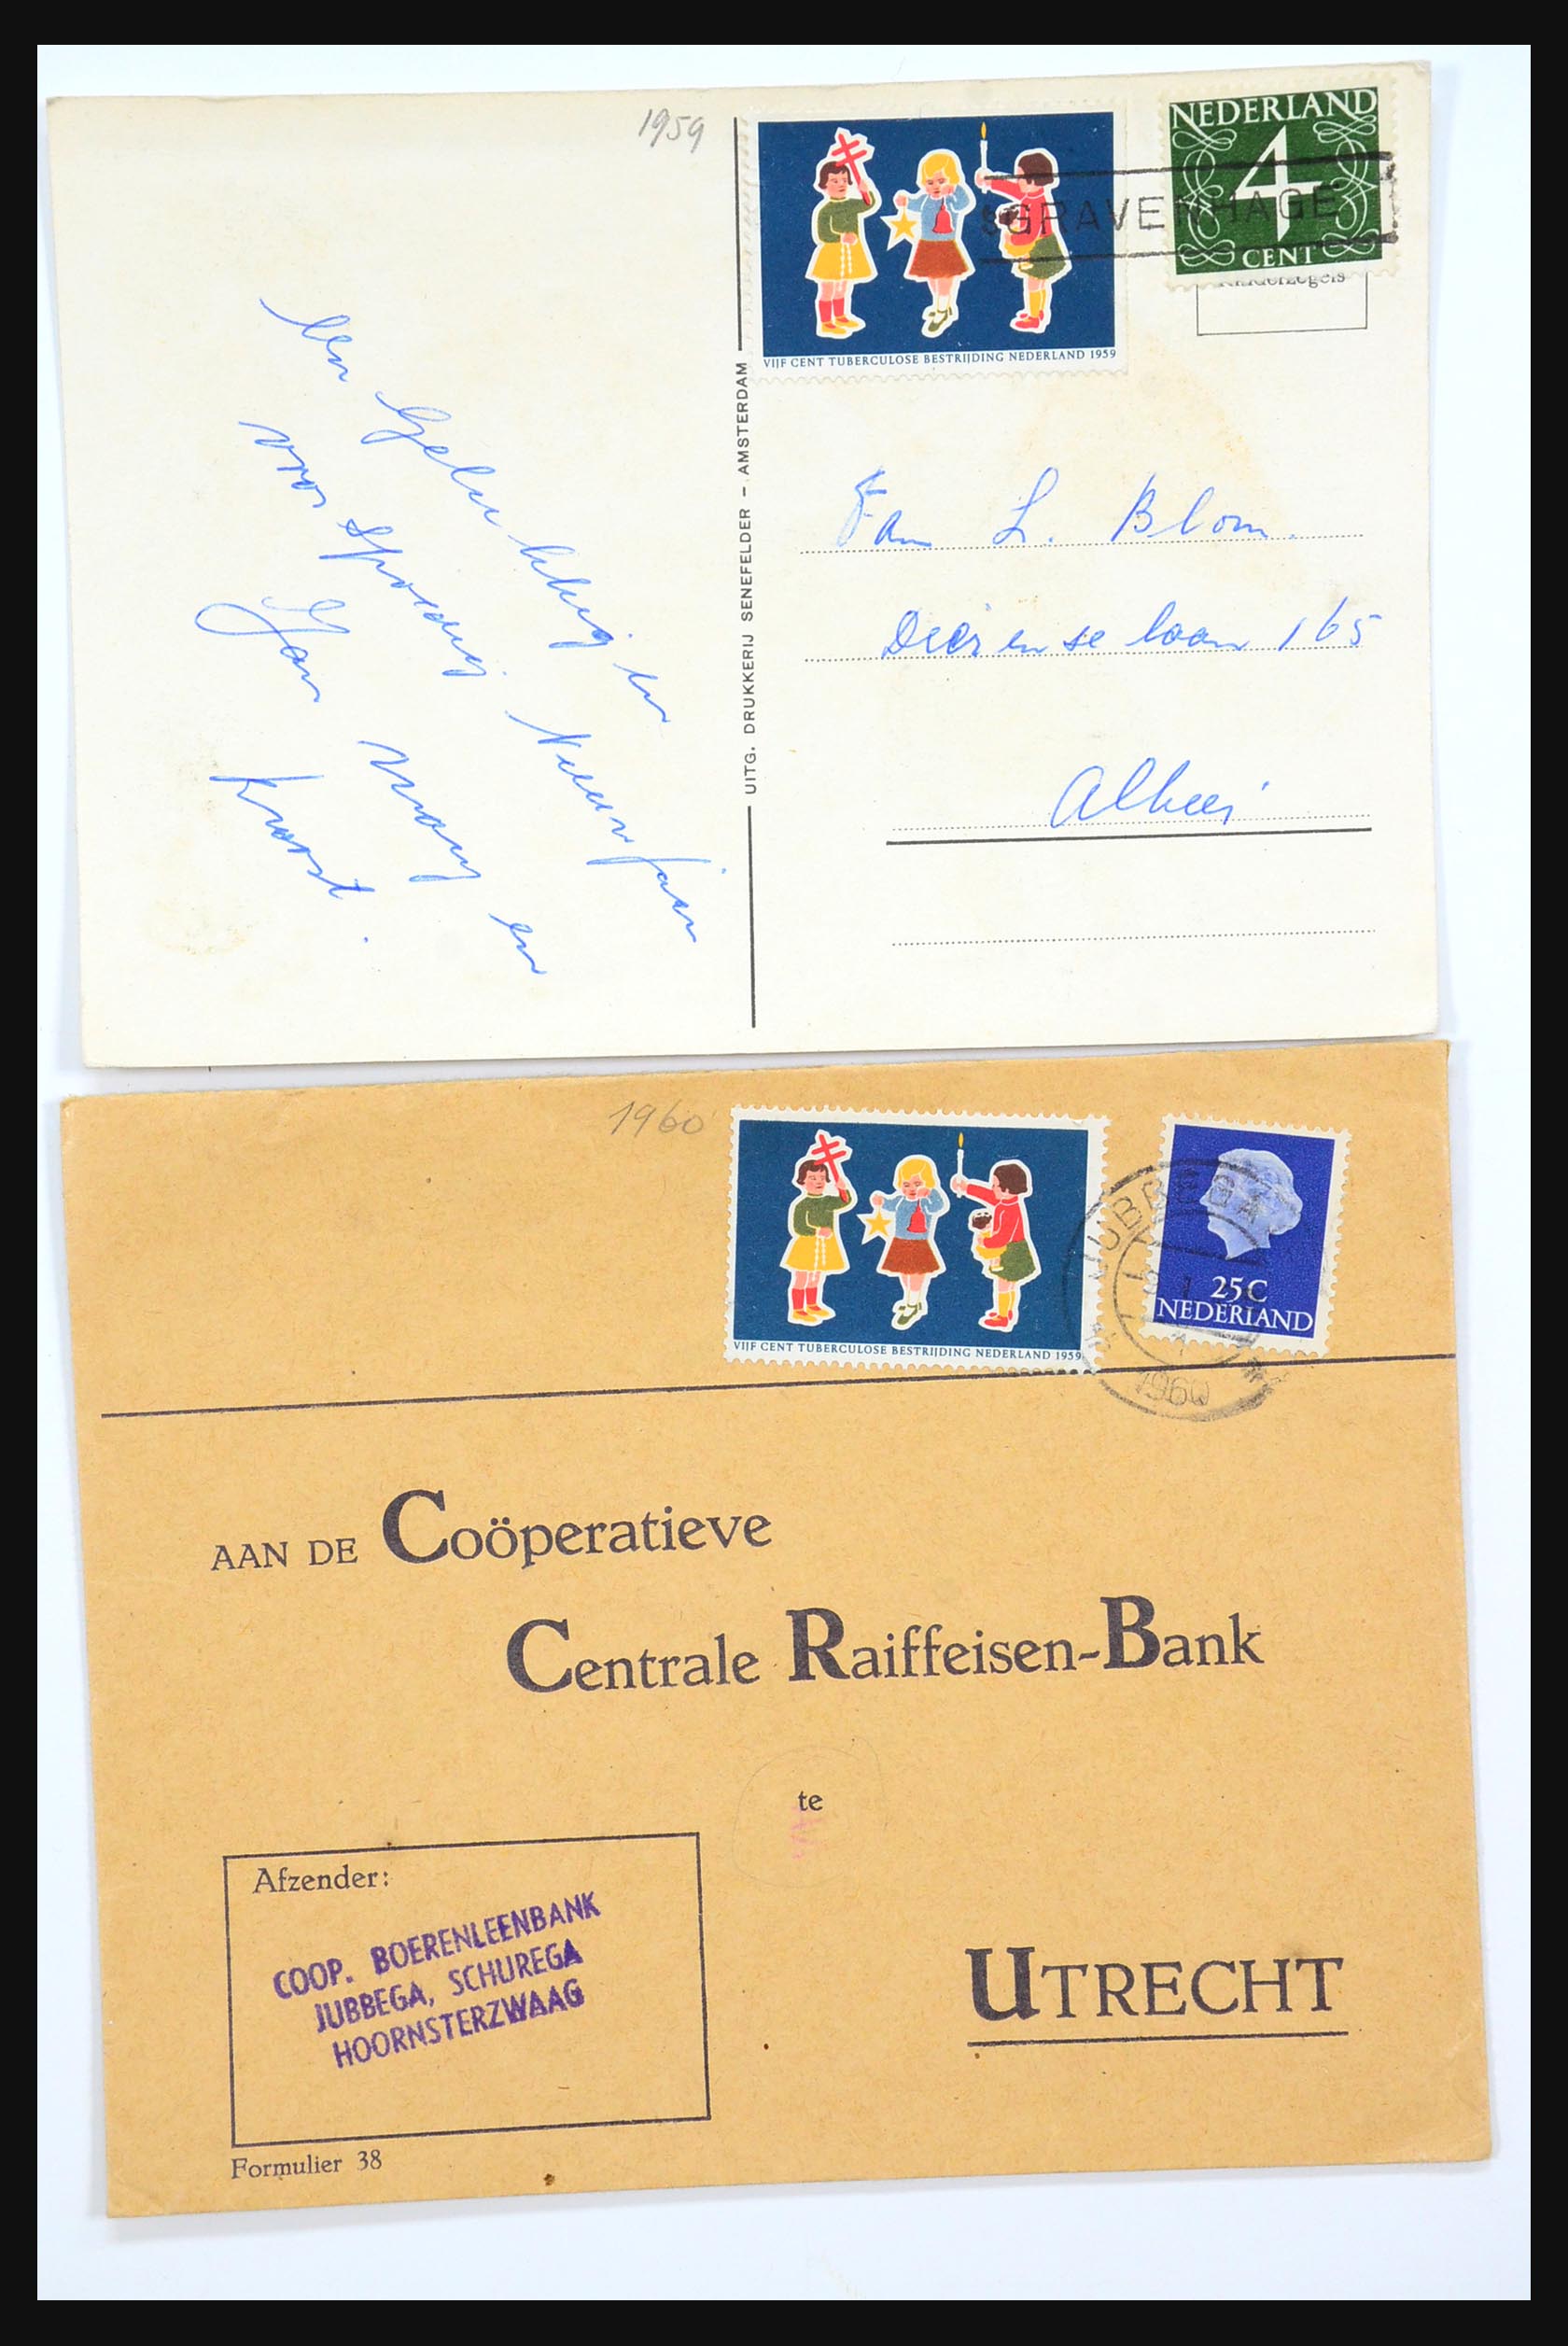 1959
NEDERLAND
4
CENT
SGRAVENHAGE
Kinderzegels
VIJF CENT TUBERCULOSE BESTRIJDING NEDERLAND 1959
UITG. DRUKKERIJ SENEFELDER – AMSTERDAM
Een Gelukkig en
voorspoedig Nieuwjaar
Jan en
Fam L. Blom.
Deerense laan 165
Alhier
1960
VIJF CENT TUBERCULOSE BESTRIJDING NEDERLAND 1959
25C
NEDERLAND
JUBBEGA
1960
AAN DE Coöperatieve
Centrale Raiffeisen-Bank
te
UTRECHT
Afzender:
COOP. BOERENLEENBANK
JUBBEGA, SCHUREGA
HOORNSTERZWAAG
Formulier 38